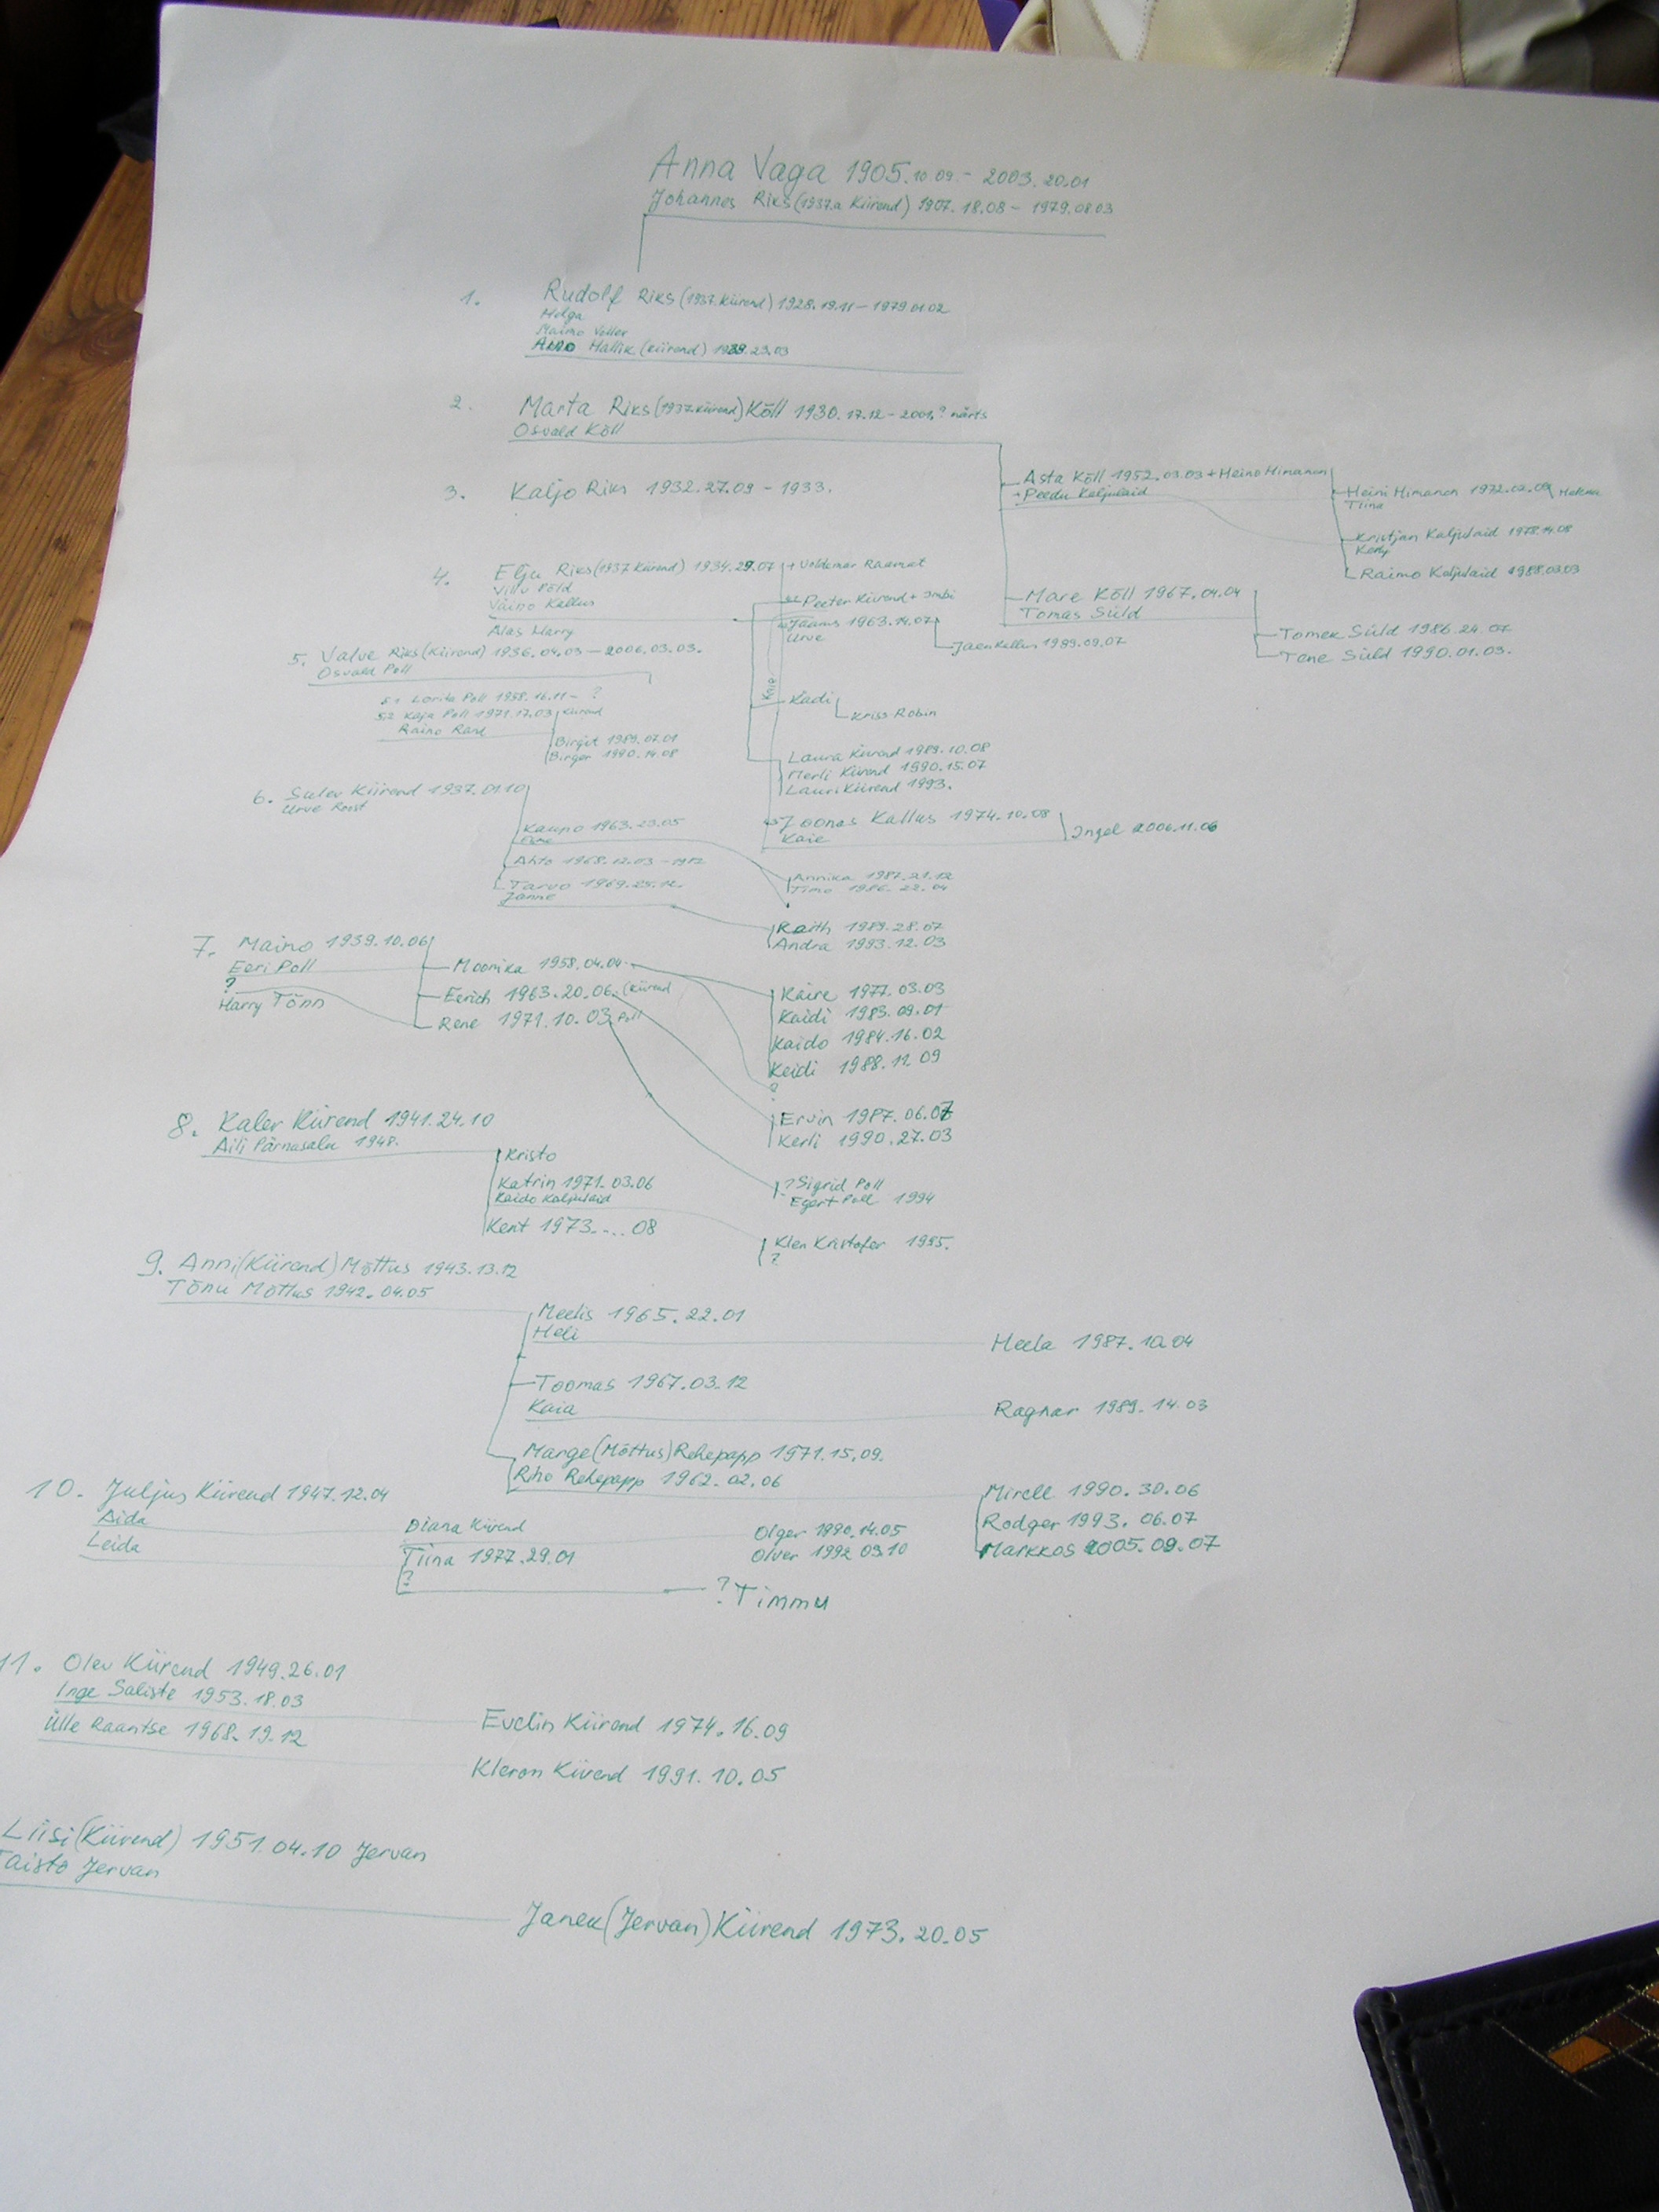 Anna Vaga 1905.10.09 - 2003.20.01
Johannes Riks (1937.a Kiirend) 1907.18.08 - 1979.08.03
1. Rudolf Riks (1937. Kiirend) 1928.19.11 - 1979.01.02
Helga
Maimo Voller
Aino Hallik (Kiirend) 1939.23.03
2. Marta Riks (1937 Kiirend) Köll 1930.17.12 - 2001.? märts
Osvald Köll
Asta Köll 1952.03.03 + Heino Himanen
+ Peedu Kaljulaid
Heini Himanen 1972.02.09 Helena
Tiina
Kristjan Kaljulaid 1978.14.08
Kerly
Raimo Kaljulaid 1988.03.03
Mare Köll 1967.04.04
Tomas Süld
Tomek Süld 1986.24.07
Tane Süld 1990.01.03.
3. Kaljo Riks 1932.27.09 - 1933.
4. Elju Riks (1937 Kiirend) 1934.29.07 + Voldemar Raamat
Villu Põld
Väino Kallus
Alas Harry
Peeter Kiirend + Imbi
Jaanus 1963.14.07
Urve
Jaen Kallus 1989.09.07
Kaja
Kadi
Kriss Robin
Laura Kiirend 1989.10.08
Merli Kiirend 1990.15.07
Lauri Kiirend 1993.
Joonas Kallus 1974.10.08
Kaie
Ingel 2006.11.06
5. Valve Riks (Kiirend) 1936.04.03 - 2006.03.03.
Osvald Poll
§1 Lorita Poll 1958.16.11 - ?
§2 Kaja Poll 1971.17.03 Kiirend
Raino Rand
Birgit 1989.07.01
Birger 1990.14.08
6. Sulev Kiirend 1937.01.10
Urve Roost
Kaupo 1963.23.05
Ahto 1968.12.03 - 1972
Tarvo 1969.25.12.
Janne
Annika 1987.21.12
Timo 1986.22.04
Raith 1989.28.07
Andra 1993.12.03
7. Maino 1939.10.06
Eeri Poll
?
Harry Tõnn
Moonika 1958.04.04
Eerich 1963.20.06. (Kiirend
Rene 1971.10.03 Poll
Kaire 1977.03.03
Kaidi 1983.09.01
Kaido 1984.16.02
Keidi 1988.11.09
?
Ervin 1987.06.07
Kerli 1990.27.03
? Sigrid Poll
Egert Poll 1994
8. Kaler Kiirend 1941.24.10
Aili Pärnasalu 1948.
Kristo
Katrin 1971.03.06
Kaido Kaljulaid
Kent 1973.... 08
Klen Kristofer 1995.
?
9. Anni (Kiirend) Mõttus 1943.13.12
Tõnu Mõttus 1942.04.05
Meelis 1965.22.01
Heli
Meela 1987.10.04
Toomas 1967.03.12
Kaia
Ragnar 1989.14.03
Marge (Mõttus) Rehepapp 1971.15.09.
Riho Rehepapp 1962.02.06
Mirell 1990.30.06
Rodger 1993.06.07
Markkos 2005.09.07
10. Juljus Kiirend 1947.12.04
Aida
Leida
Diana Kiirend
Tiina 1977.29.01
?
Olger 1990.14.05
Olver 1992 03.10
? Timmu
11. Olev Kiirend 1949.26.01
Inge Saliste 1953.18.03
Ülle Raantse 1968.19.12
Evelin Kiirend 1974.16.09
Kleron Kiirend 1991.10.05
Liisi (Kiirend) 1951.04.10 Jervan
Taisto Jervan
Janek (Jervan) Kiirend 1973.20.05